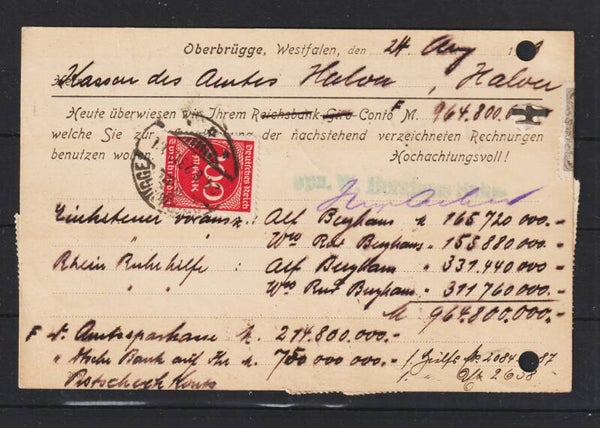 Oberbrügge, Westfalen, den 24 Aug
Kassen des Amtes Halver, Halver
Heute überwiesen wir Ihrem Reichsbank-Giro-Conto F M. 964.800.
welche Sie zur der nachstehend verzeichneten Rechnungen
benutzen wollen. Hochachtungsvoll!
Deutsches Reich
Alf Berghaus M 165 720 000.-
Wwe Rud Berghaus " 155 880 000.-
Rhein Ruhrhilfe : Alf Berghaus " 331 440 000.-
" " Wwe Rud Berghaus " 311 760 000.-
M 964.800.000.-
F d. Amtssparkasse M. 214.800.000.-
" Bank auf Ihr M. 750 000 000.-
Postscheck Konto